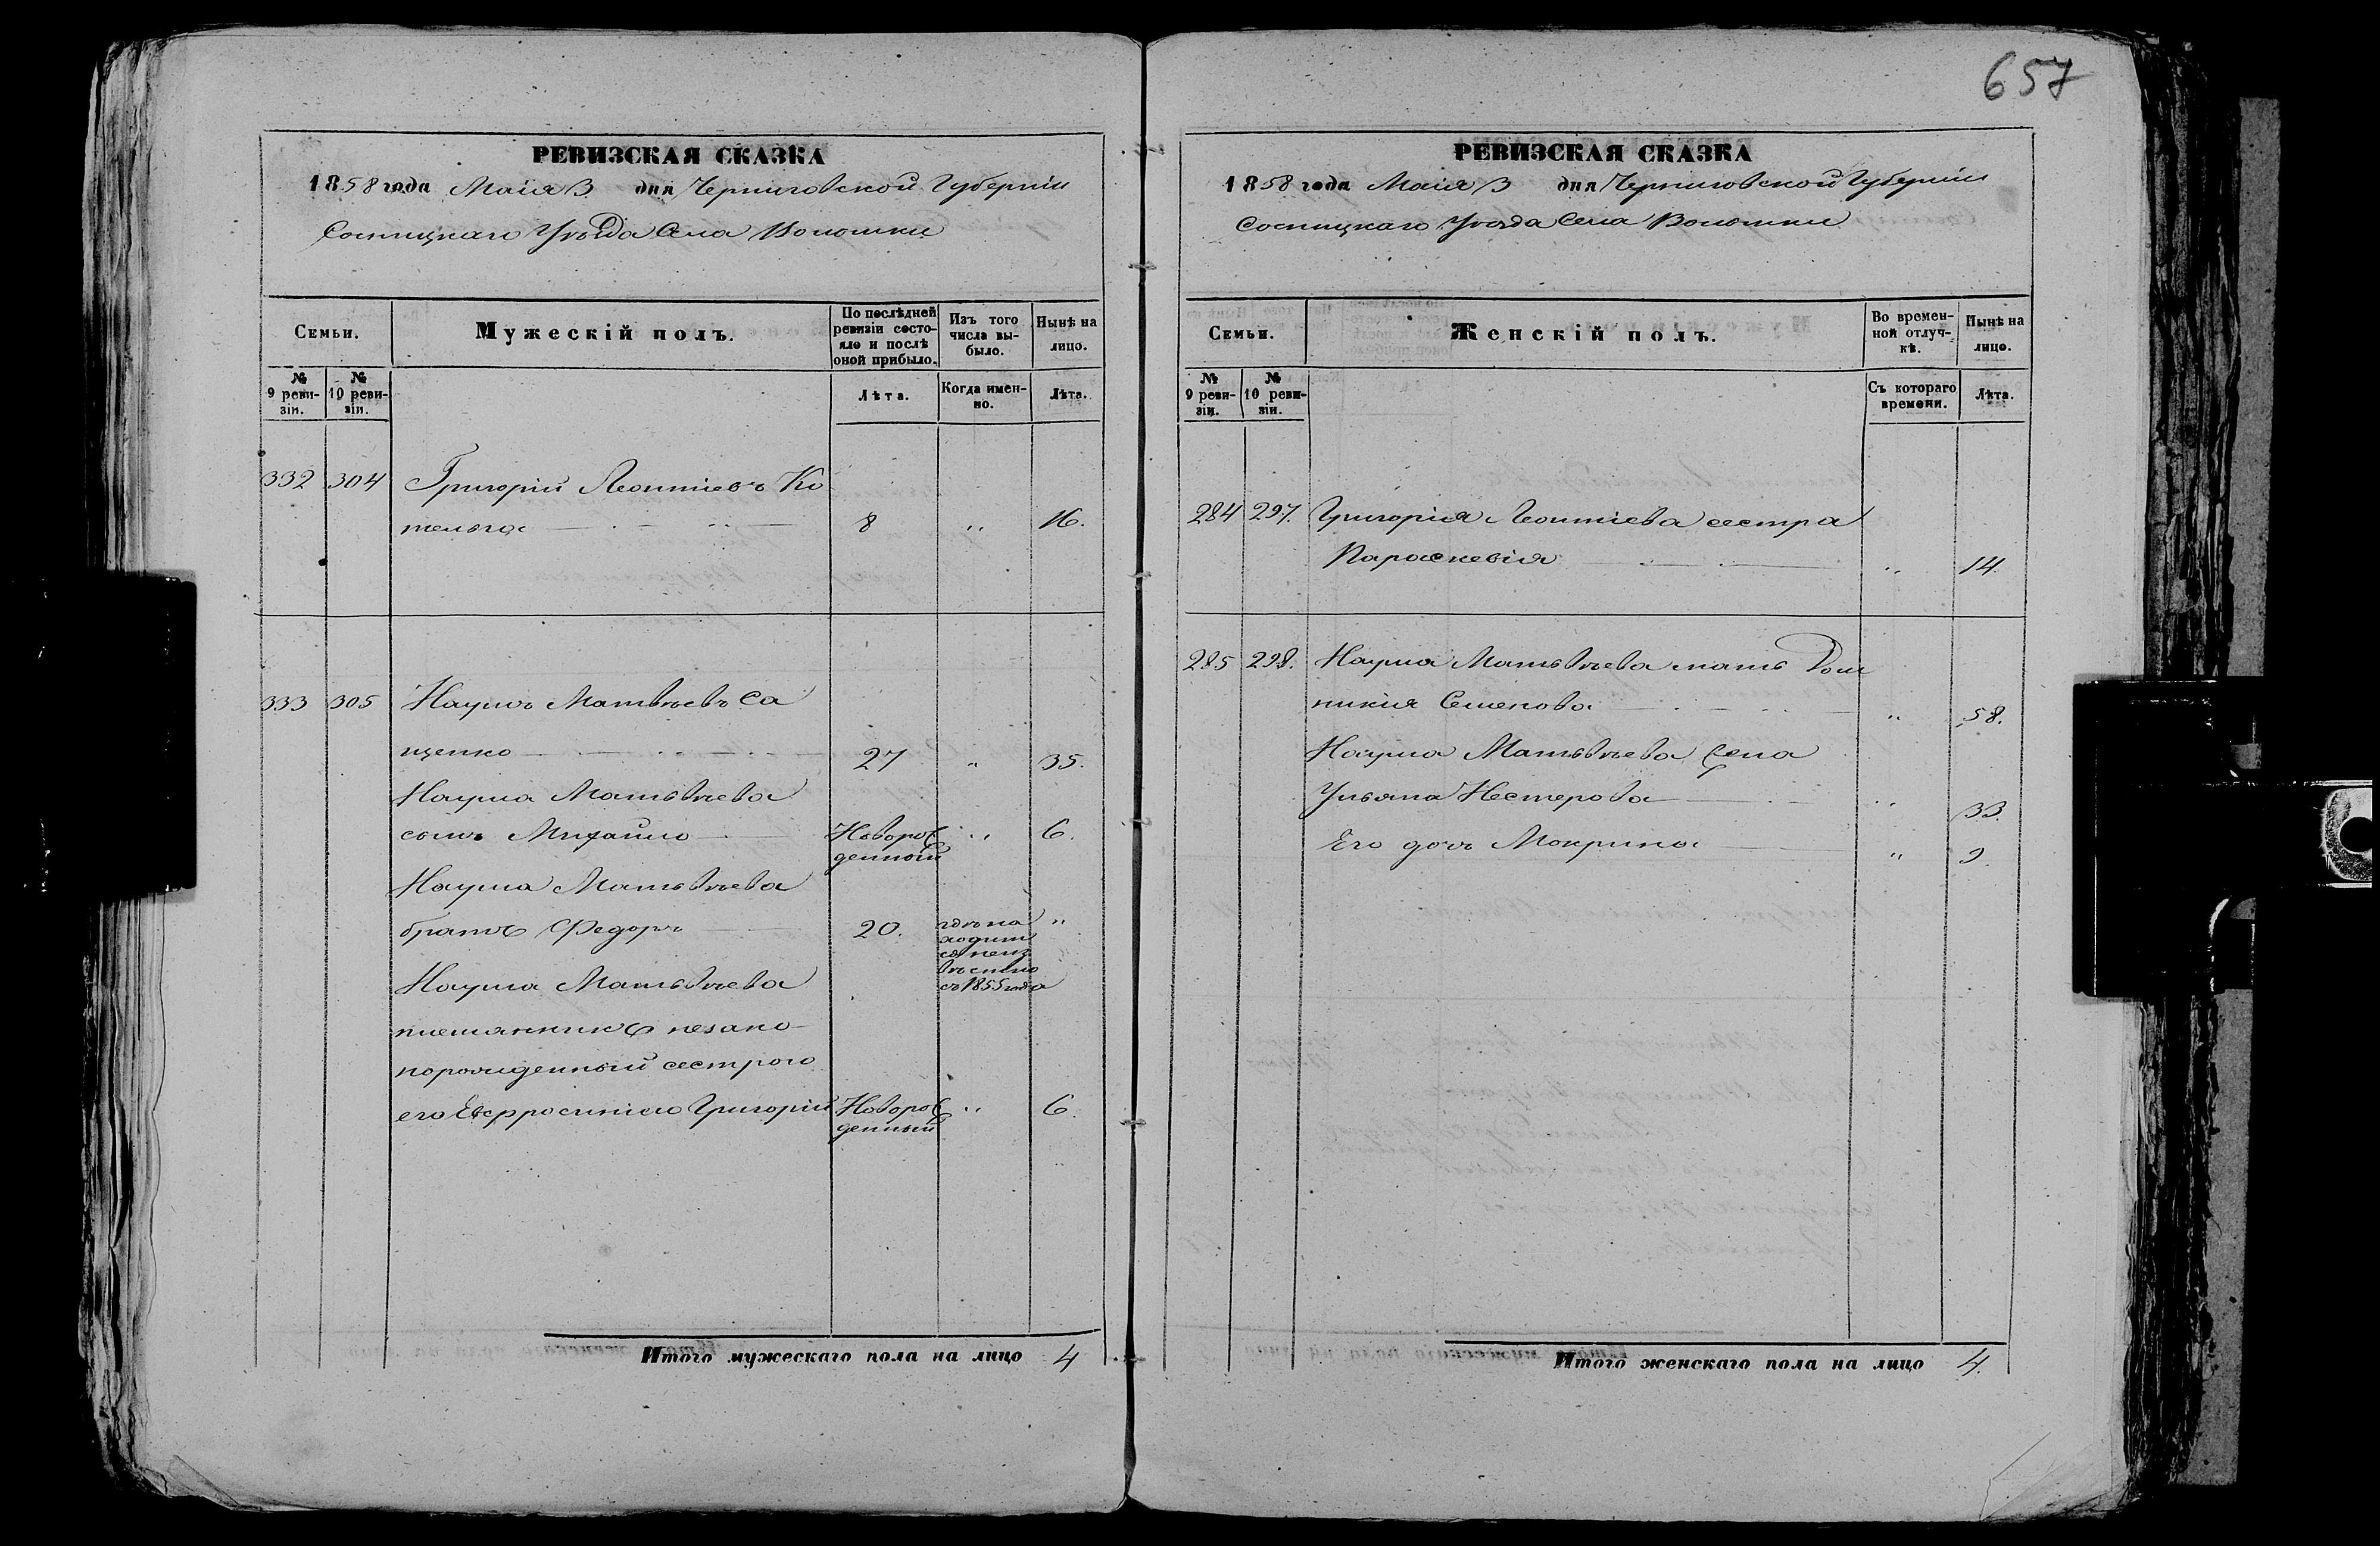 657
РЕВИЗСКАЯ СКАЗКА
1858 года Маія 3 дня Черниговской Губерніи
Сосницкаго Уѣзда Села Волошки
Семьи.
Мужескій полъ.
По послѣдней ревизіи состояло и послѣ оной прибыло.
Изъ того числа выбыло.
Нынѣ на лицо.
№ 9 ревизіи.
№ 10 ревизіи.
Лѣта.
Когда именно.
Лѣта.
332 304 Григорій Леонтіевъ Ко
тельга 8 " 16.
333 305 Наумъ Матвѣевъ Са
щенко 27 " 35.
Наума Матвѣева
сынъ Михайло Новорож " 6.
денный
Наума Матвѣева
братъ Федоръ 20. гдѣ на "
ходит
ся неиз
вѣстно
съ 1855 года
Наума Матвѣева
племянникъ незако
норожденный сестрою
его Евфросиніею Григорій Новорож " 6.
денный
Итого мужескаго пола на лицо 4
РЕВИЗСКАЯ СКАЗКА
1858 года Маія 3 дня Черниговской Губерніи
Сосницкаго Уѣзда Села Волошки
Семьи.
Женскій полъ.
Во временной отлучкѣ.
Нынѣ на лицо.
№ 9 ревизіи.
№ 10 ревизіи.
Съ котораго времени.
Лѣта.
284 297. Григорія Леонтіева сестра
Параскевія " 14.
285 298. Наума Матвѣева мать Дом
никія Семенова " 58.
Наума Матвѣева жена
Ульяна Нестерова " 33.
Его дочь Мокрина "
Итого женскаго пола на лицо 4.